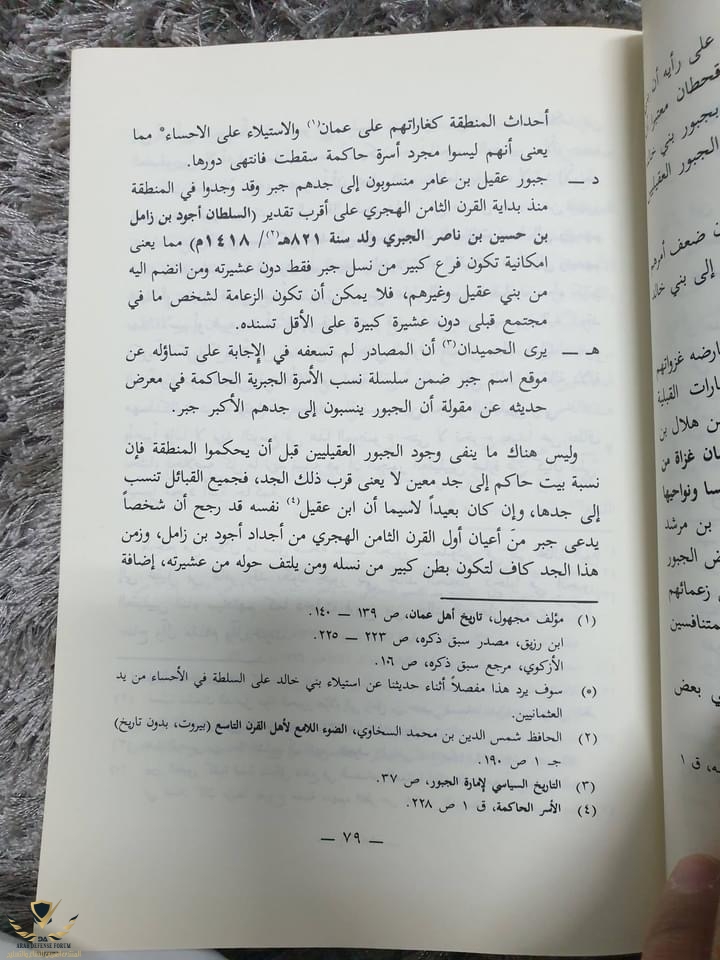 أحداث المنطقة كغاراتهم على عمان(١) والاستيلاء على الاحساء* مما
يعنى أنهم ليسوا مجرد أسرة حاكمة سقطت فانتهى دورها.
د — جبور عقيل بن عامر منسوبون إلى جدهم جبر وقد وجدوا في المنطقة
منذ بداية القرن الثامن الهجري على أقرب تقدير (السلطان أجود بن زامل
بن حسين بن ناصر الجبري ولد سنة ٨٢١هـ(٢)/ ١٤١٨م) مما يعنى
امكانية تكون فرع كبير من نسل جبر فقط دون عشيرته ومن انضم اليه
من بني عقيل وغيرهم، فلا يمكن أن تكون الزعامة لشخص ما في
مجتمع قبلى دون عشيرة كبيرة على الأقل تسنده.
هـ — يرى الحميدان(٣) أن المصادر لم تسعفه في الإجابة على تساؤله عن
موقع اسم جبر ضمن سلسلة نسب الأسرة الجبرية الحاكمة في معرض
حديثه عن مقولة أن الجبور ينسبون إلى جدهم الأكبر جبر.
وليس هناك ما ينفى وجود الجبور العقيليين قبل أن يحكموا المنطقة فإن
نسبة بيت حاكم إلى جد معين لا يعنى قرب ذلك الجد، فجميع القبائل تنسب
إلى جدها، وإن كان بعيداً لاسيما أن ابن عقيل(٤) نفسه قد رجح أن شخصاً
يدعى جبر من أعيان أول القرن الثامن الهجري من أجداد أجود بن زامل، وزمن
هذا الجد كاف لتكون بطن كبير من نسله ومن يلتف حوله من عشيرته، إضافة
(١) مؤلف مجهول، تاريخ أهل عمان، ص ١٣٩ — ١٤٠.
ابن رزيق، مصدر سبق ذكره، ص ٢٢٣ — ٢٢٥.
الأزكوي، مرجع سبق ذكره، ص ١٦.
(*) سوف يرد هذا مفصلاً أثناء حديثنا عن استيلاء بني خالد على السلطة في الأحساء من يد
العثمانيين.
(٢) الحافظ شمس الدين بن محمد السخاوي، الضوء اللامع لأهل القرن التاسع (بيروت، بدون تاريخ)
جـ ١ ص ١٩٠.
(٣) التاريخ السياسي لإمارة الجبور، ص ٣٧.
(٤) الأسر الحاكمة، ق ١ ص ٢٢٨.
— ٧٩ —
على رأيه أن
قحطان
بجبور بني
الجبور
ضعف أمرهم
إلى بني خالد
غزواتهم
القبلية
هلال بن
غزاة من
ونواحيها
بن مرشد
الجبور
زعمائهم
بعض
ق ١
ARAB DEFENSE FORUM